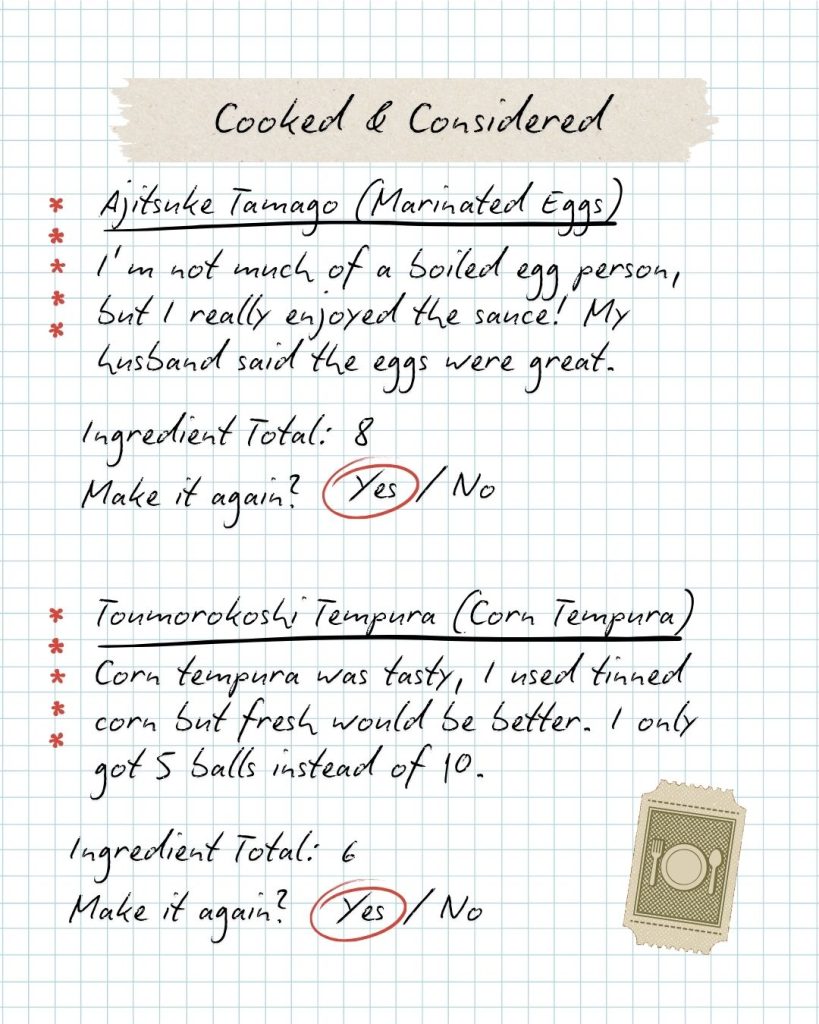 Cooked & Considered
Ajitsuke Tamago (Marinated Eggs)
I'm not much of a boiled egg person,
but I really enjoyed the sauce! My
husband said the eggs were great.
Ingredient Total: 8
Make it again? Yes / No
Toumorokoshi Tempura (Corn Tempura)
Corn tempura was tasty, I used tinned
corn but fresh would be better. I only
got 5 balls instead of 10.
Ingredient Total: 6
Make it again? Yes / No